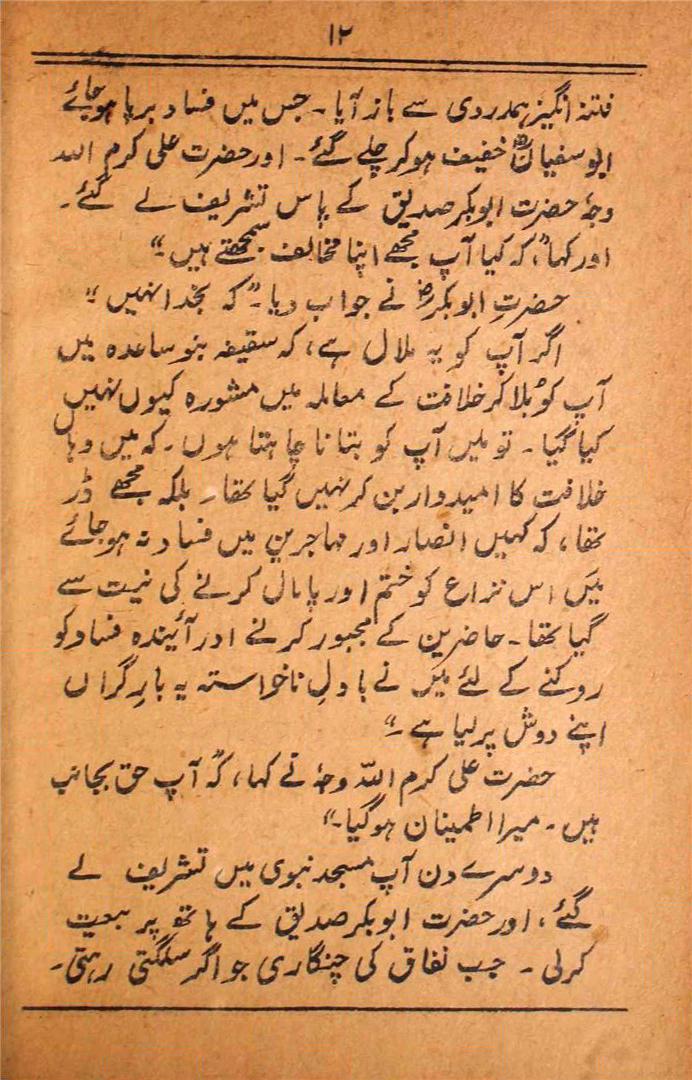 ۱۲
فتنہ انگیز ہمدردی سے باز آیا۔ جس میں فساد برپا ہو جائے
ابو سفیانؓ خفیف ہو کر چلے گئے۔ اور حضرت علی کرم اللہ
وجہٗ حضرت ابوبکر صدیق کے پاس تشریف لے گئے۔
اور کہا، "کہ کیا آپ مجھے اپنا مخالف سمجھتے ہیں۔"
حضرتِ ابوبکرؓ نے جواب دیا۔ "کہ بخدا نہیں"
اگر آپ کو یہ ملال ہے، کہ سقیفہ بنو ساعدہ میں
آپ کو بُلا کر خلافت کے معاملہ میں مشورہ کیوں نہیں
کیا گیا۔ تو میں آپ کو بتانا چاہتا ہوں۔ کہ میں وہاں
خلافت کا امیدوار بن کر نہیں گیا تھا۔ بلکہ مجھے ڈر
تھا، کہ کہیں انصار اور مہاجرین میں فساد نہ ہو جائے
میَں اس نزاع کو ختم اور پامال کرنے کی نیت سے
گیا تھا۔ حاضرین کے مجبور کرنے اور آئیندہ فساد کو
روکنے کے لئے میَں نے بادلِ ناخواستہ یہ بارِ گراں
اپنے دوش پر لیا ہے۔"
حضرت علی کرم اللہ وجہٗ نے کہا، "کہ آپ حق بجانب
ہیں۔ میرا اطمینان ہو گیا۔"
دوسرے دن آپ مسجد نبوی میں تشریف لے
گئے، اور حضرت ابوبکر صدیق کے ہاتھ پر بیعت
کر لی۔ جب نفاق کی چنگاری جو اگر سلگتی رہتی۔